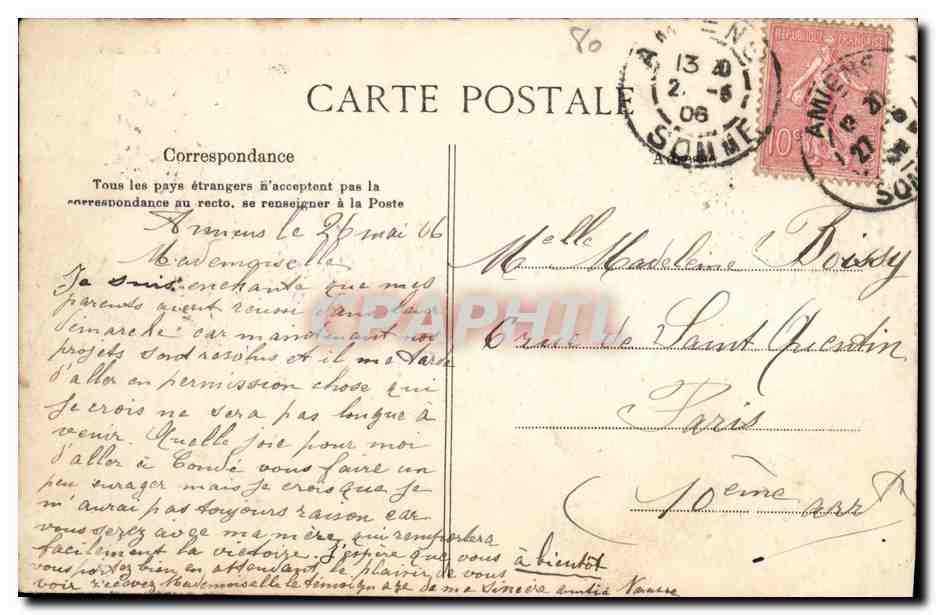 80
CARTE POSTALE
AMIENS
13 20
27 -5
06
SOMME
REPUBLIQUE FRANÇAISE
10c
AMIENS
27
SOMME
Correspondance
Tous les pays étrangers n'acceptent pas la
correspondance au recto, se renseigner à la Poste
Amiens le 26 mai 06
Mademoiselle
Je suis enchanté que mes
parents aient reussi dans leur
démarche car maintenant nos
projets sont resolus et il me tarde
d'aller en permission chose qui
je crois ne sera pas longue à
venir. Quelle joie pour moi
d'aller à Condé vous faire un
peu enrager mais je crois que je
n'aurai pas toujours raison car
vous serez avec ma mère, qui remportera
facilement la victoire. J'espère que vous
vous portez bien en attendant le plaisir de vous
voir recevez Mademoiselle le témoignage de ma sincère amitié
à bientôt
Adresse
Melle Madeleine Boissy
6 rue de Saint Quentin
Paris
(10ème arrt)
CPAPHIL